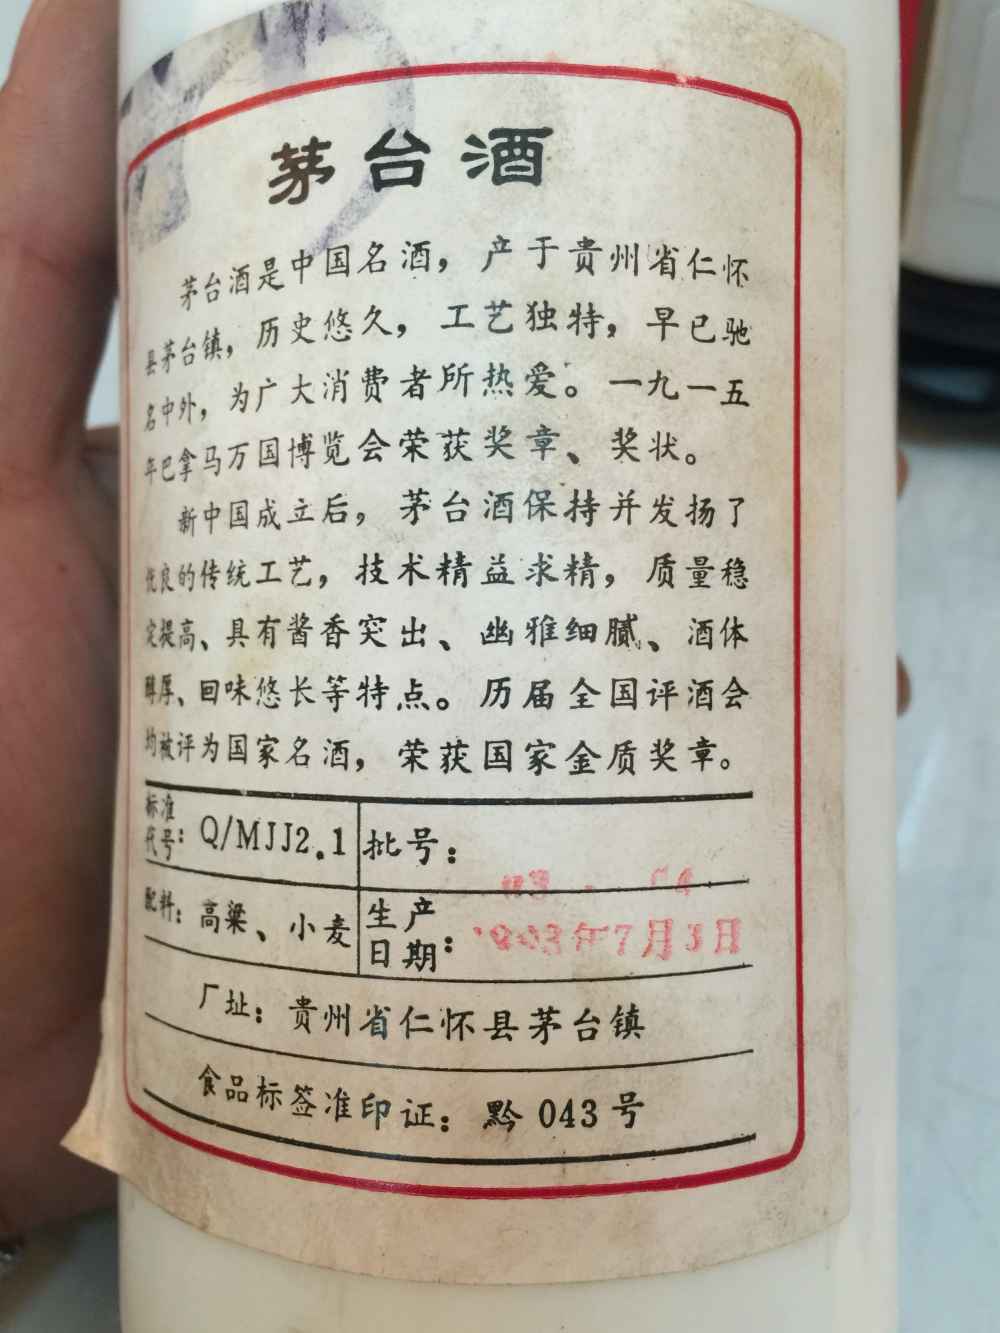 茅台酒
茅台酒是中国名酒，产于贵州省仁怀
县茅台镇，历史悠久，工艺独特，早已驰
名中外，为广大消费者所热爱。一九一五
年巴拿马万国博览会荣获奖章、奖状。
新中国成立后，茅台酒保持并发扬了
优良的传统工艺，技术精益求精，质量稳
定提高、具有酱香突出、幽雅细腻、酒体
醇厚、回味悠长等特点。历届全国评酒会
均被评为国家名酒，荣获国家金质奖章。
标准代号：Q/MJJ2.1 批号：
配料：高粱、小麦 生产日期： 年7月3日
厂址：贵州省仁怀县茅台镇
食品标签准印证：黔 043 号